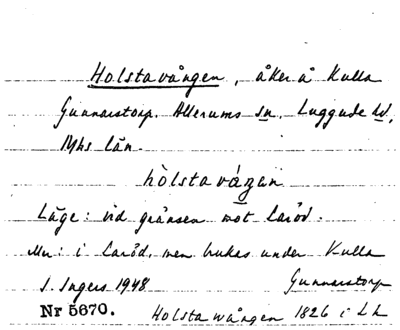 Holstavången, åker å Kulla
Gunnarstorp. Allerums sn. Luggude hd,
Mhs län.
hòlstavá̱ŋan
Läge: vid gränsen mot Laröd.
Mu: i Laröd, men brukas under Kulla
Gunnarstorp
I. Ingers 1948
Nr 5670. Holsta wången 1826 i Lh